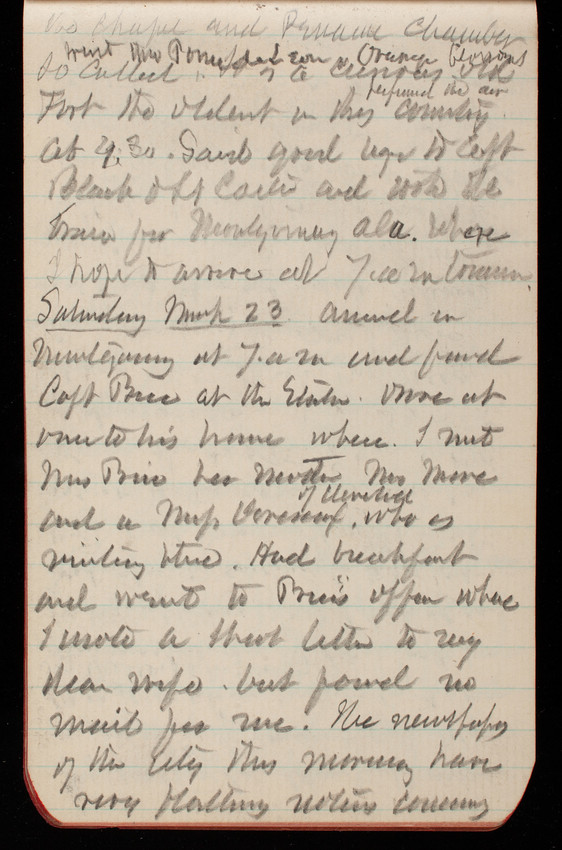 the chapel and          Chamber
went thro Ponce de Leon. Orange blossoms
so called. It is a curious old
perfumed the air
Fort the oldest in this country.
at 4.30. Said good bye to Capt
Black & Lt          and took the
train for Montgomery Ala. where
I hope to arrive at 7 a m tomorrow.
Saturday March 23 arrived in
Montgomery at 7 a m and found
Capt         at the Station. Drove at
once to his home where I met
Mrs         her mother Mrs
of Cleveland
and a Miss         , who is
visiting there. Had breakfast
and went to         office where
I wrote a short letter to my
dear wife. but found no
mail for me. The newspapers
of the City this morning have
very flattering notices